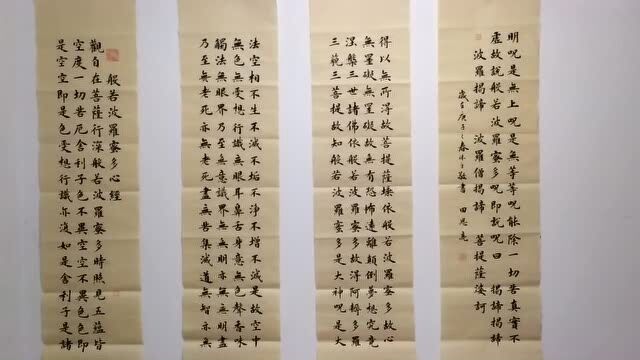 般若波羅蜜多心經
觀自在菩薩行深般若波羅蜜多時照見五蘊皆
空度一切苦厄舍利子色不異空空不異色色即
是空空即是色受想行識亦復如是舍利子是諸
法空相不生不滅不垢不淨不增不減是故空中
無色無受想行識無眼耳鼻舌身意無色聲香味
觸法無眼界乃至無意識界無無明亦無無明盡
乃至無老死亦無老死盡無苦集滅道無智亦無
得以無所得故菩提薩埵依般若波羅蜜多故心
無罣礙無罣礙故無有恐怖遠離顛倒夢想究竟
涅槃三世諸佛依般若波羅蜜多故得阿耨多羅
三藐三菩提故知般若波羅蜜多是大神呪是大
明呪是無上呪是無等等呪能除一切苦真實不
虛故說般若波羅蜜多呪即說呪曰 揭諦揭諦
波羅揭諦 波羅僧揭諦 菩提薩婆訶
歲在庚子之春沐手敬書 田思